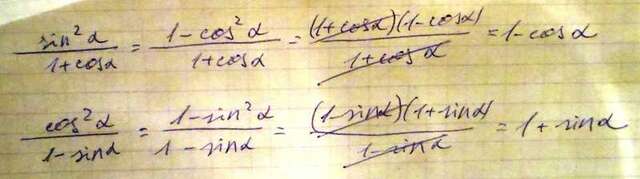 sin²α/(1+cosα) = (1-cos²α)/(1+cosα) = (1+cosα)(1-cosα)/(1+cosα) = 1-cosα
cos²α/(1-sinα) = (1-sin²α)/(1-sinα) = (1-sinα)(1+sinα)/(1-sinα) = 1+sinα